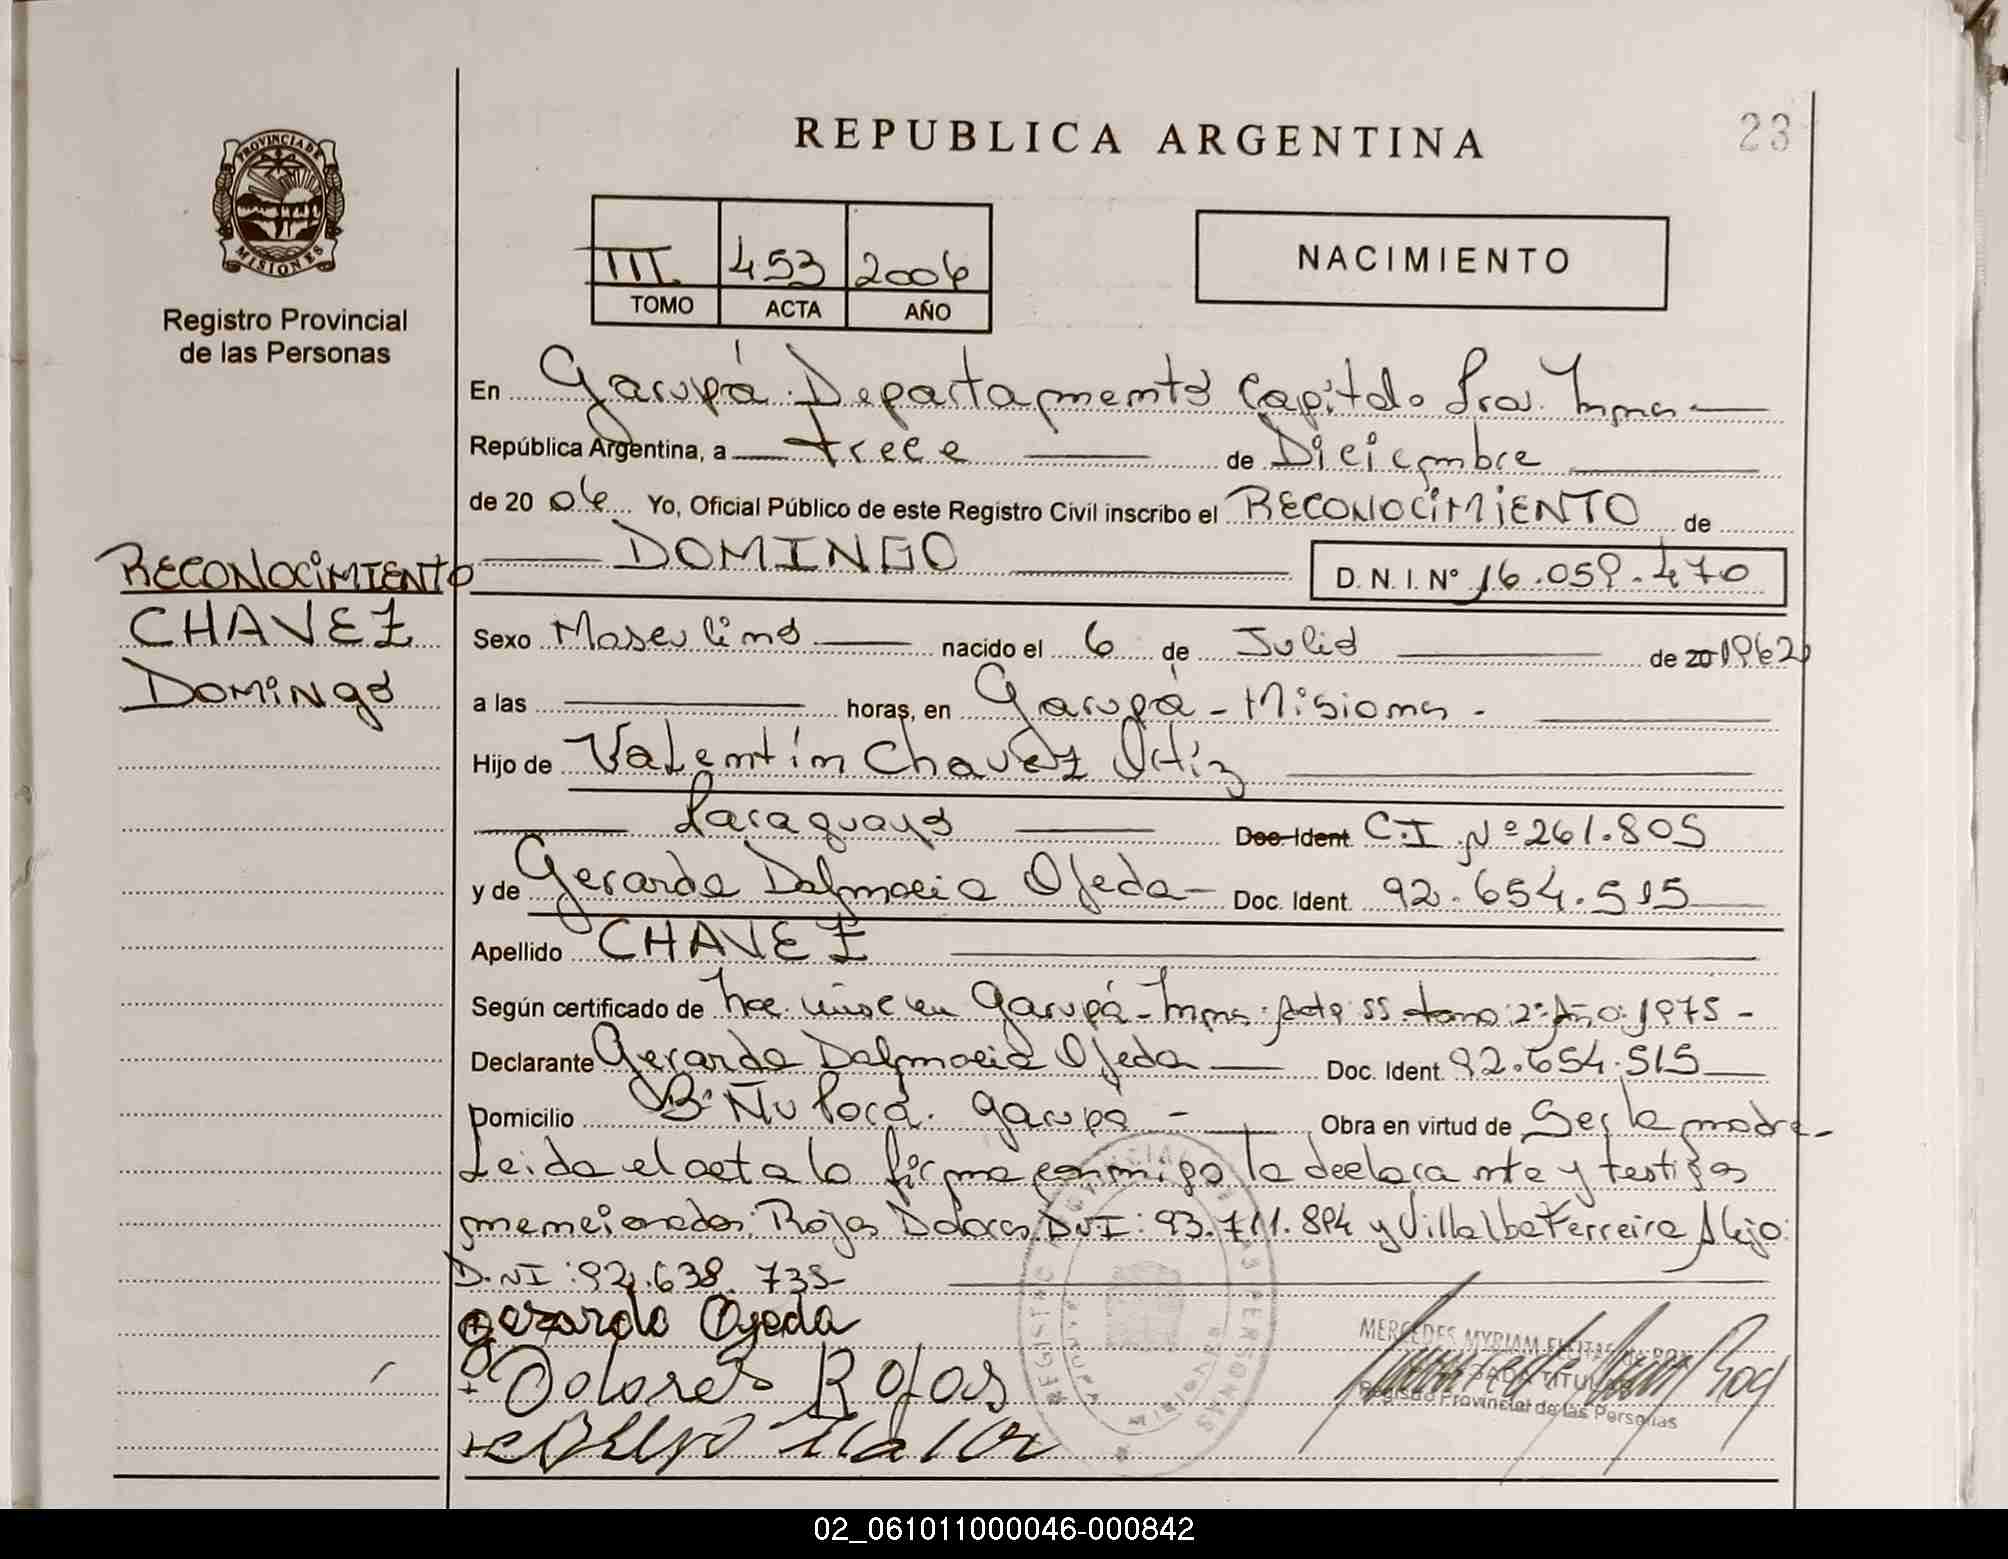 REPUBLICA ARGENTINA
23
PROVINCIA DE
MISIONES
Registro Provincial
de las Personas
III 453 2006
TOMO ACTA AÑO
NACIMIENTO
En Garupá Departamento Capital Pcia. Mnes
República Argentina, a trece de Diciembre
de 20 06 Yo, Oficial Público de este Registro Civil inscribo el RECONOCIMIENTO de
DOMINGO D. N. I. Nº 16.059.470
RECONOCIMIENTO
CHAVEZ
Domingo
Sexo Masculino nacido el 6 de Julio de 20 1962
a las horas, en Garupá - Misiones -
Hijo de Valentín Chavez Ortiz
Paraguayo Doc. Ident. C.I Nº 261.805
y de Gerarda Dalmacia Ojeda - Doc. Ident. 92.654.515
Apellido CHAVEZ
Según certificado de Nac. insc en Garupá - Mnes. Acta 55 tomo: 2º Año: 1975 -
Declarante Gerarda Dalmacia Ojeda Doc. Ident. 92.654.515
Domicilio Bº Ñu Porá. Garupá - Obra en virtud de Ser la madre -
Leida el acta la firma conmigo la declarante y testigos
mencionados: Rojas Dolores DNI: 93.711.894 y Villalba Ferreira Alejo:
D.NI: 92.638.735
Gerarda Ojeda
Dolores Rojas
MERCEDES MYRIAM
Registro Provincial de las Personas
REGISTRO PROVINCIAL DE LAS PERSONAS
02_061011000046-000842